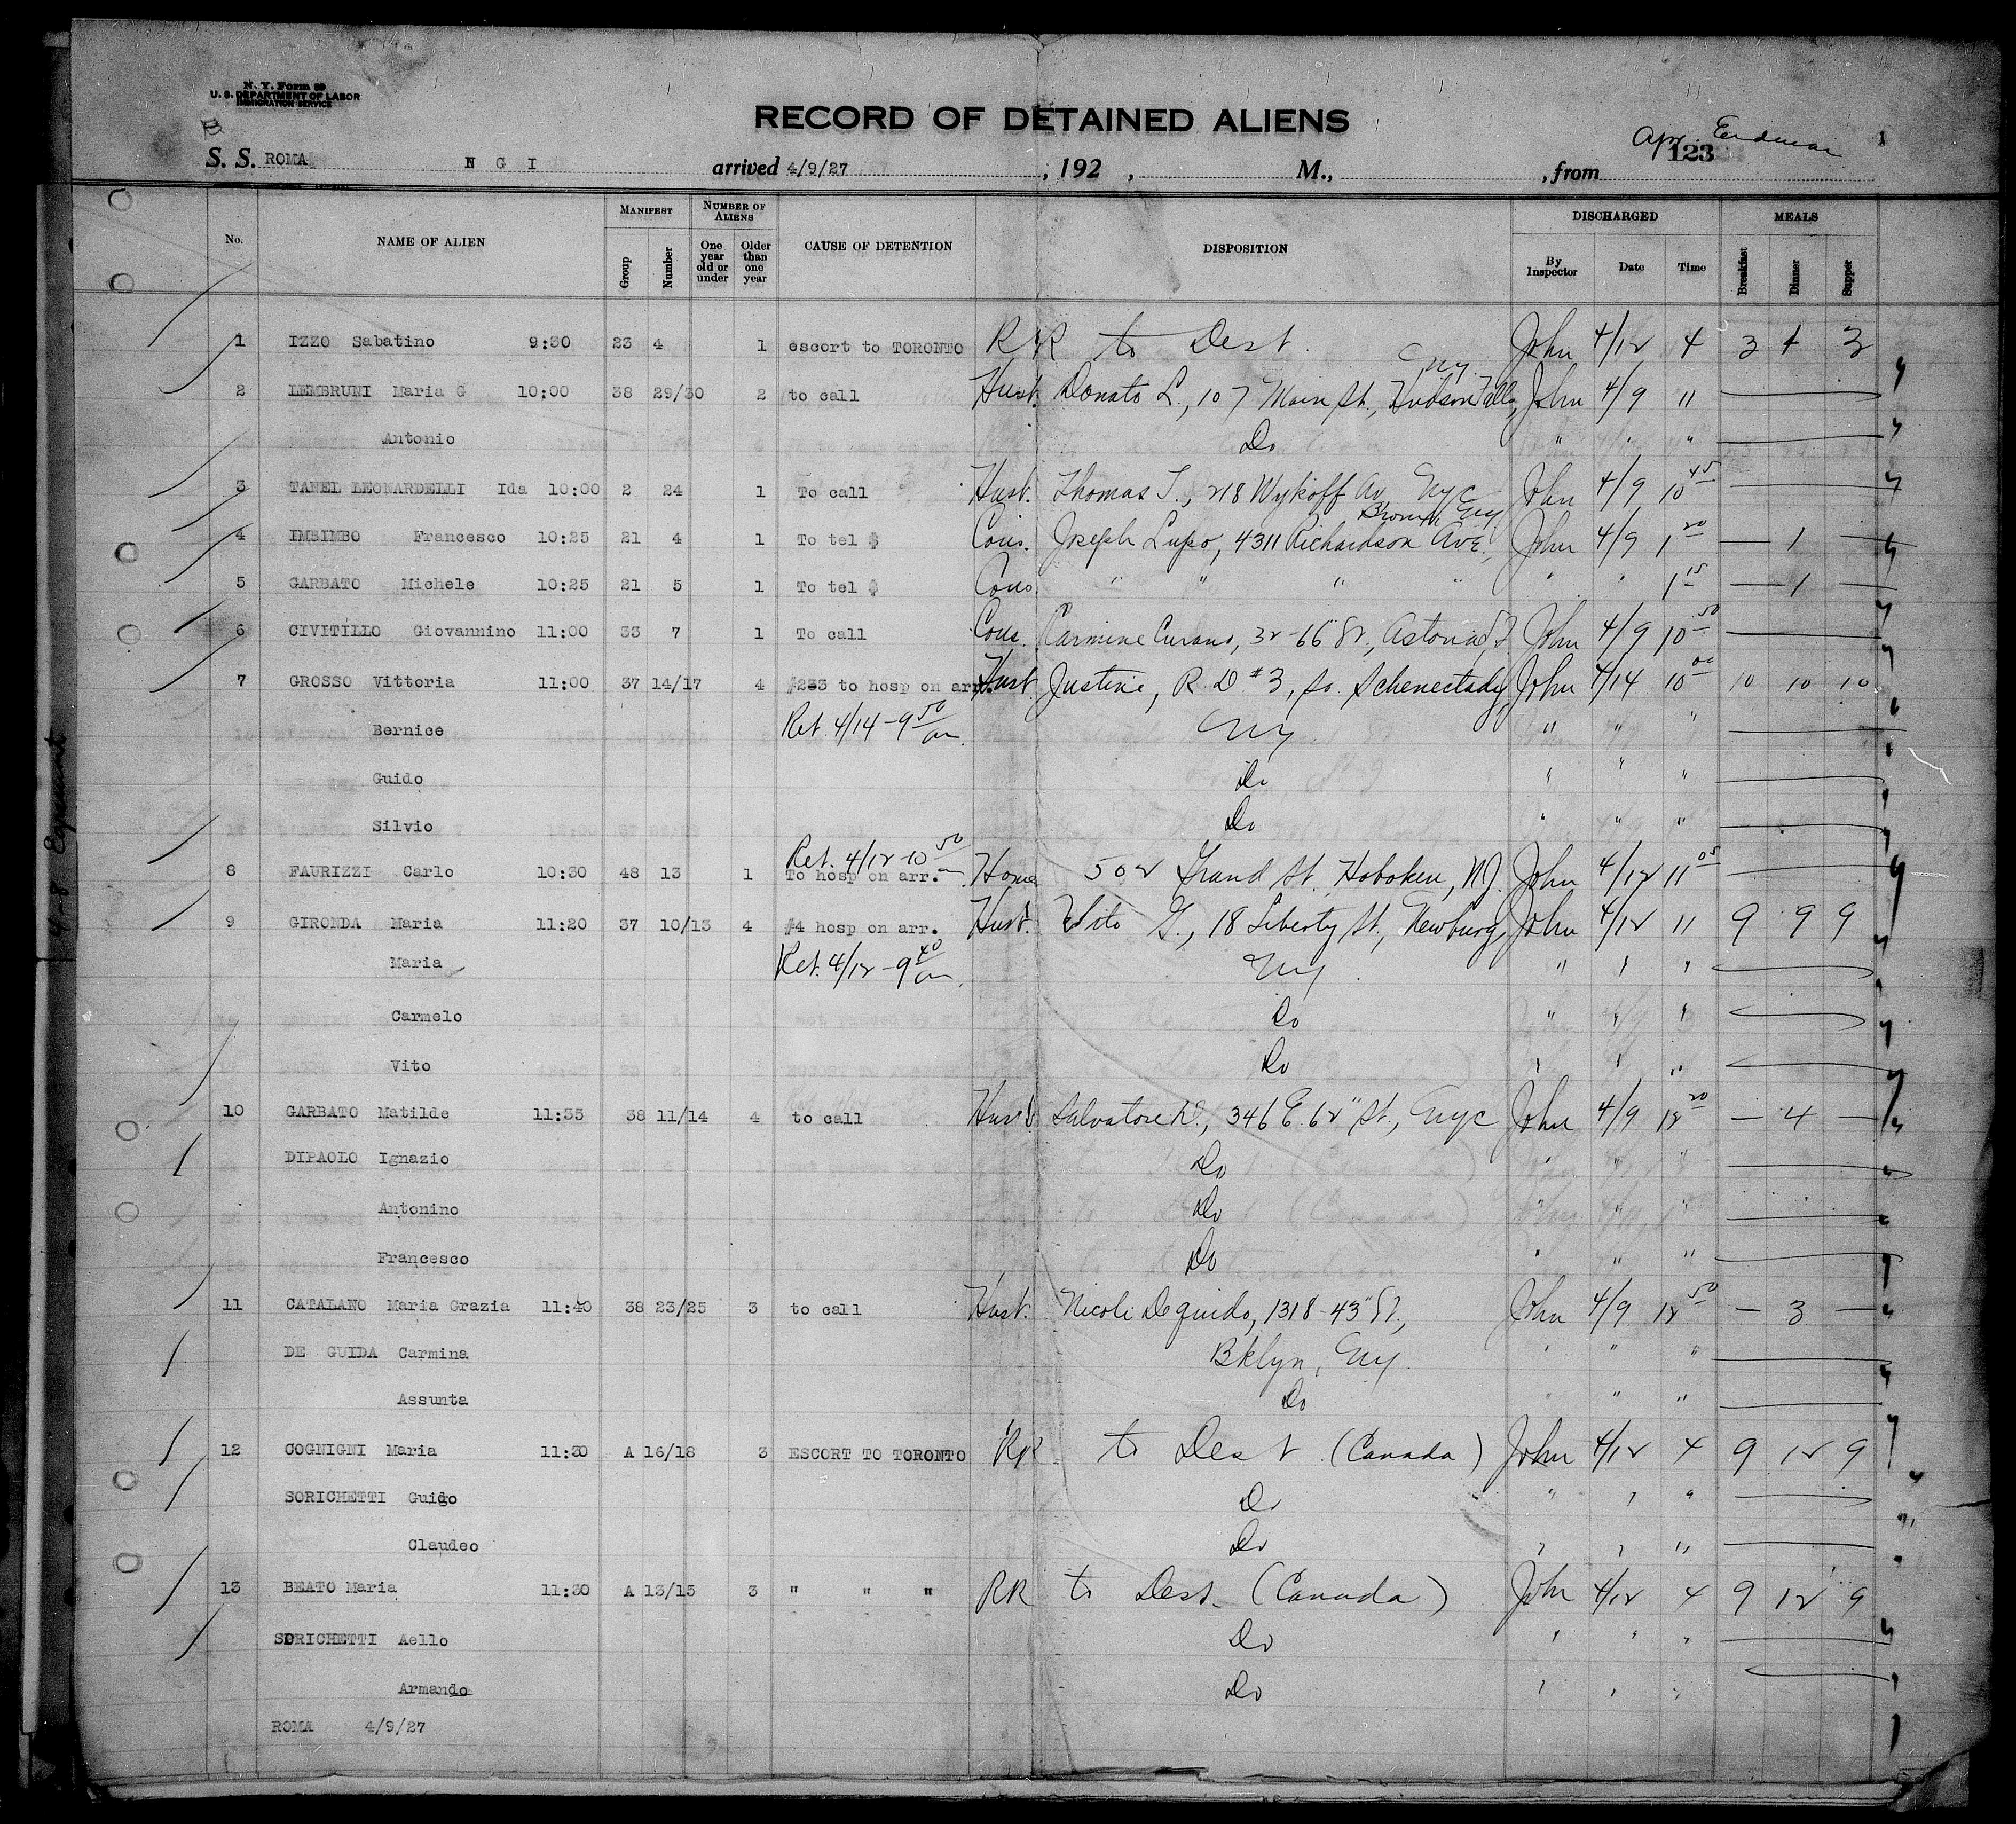 N. Y. Form 89
U. S. DEPARTMENT OF LABOR
IMMIGRATION SERVICE
RECORD OF DETAINED ALIENS
S. S. ROMA N G I arrived 4/9/27 , 192 , M., , from 123
No. NAME OF ALIEN MANIFEST Group Number NUMBER OF ALIENS One year old or under Older than one year CAUSE OF DETENTION DISPOSITION DISCHARGED By Inspector Date Time MEALS Breakfast Dinner Supper
1 IZZO Sabatino 9:30 23 4 1 escort to TORONTO RR to Dest. John 4/12 4 3 4 3
2 LEMBRUNI Maria G 10:00 38 29/30 2 to call Husb. Donato L., 107 Main St., Hudson Falls, NY. John 4/9 11
Antonio Do " " "
3 TANEL LEONARDELLI Ida 10:00 2 24 1 To call Husb. Thomas T., 218 Wykoff Av. NYC John 4/9 10 45
4 IMSIMBO Francesco 10:25 21 4 1 To tel $ Cous. Joseph Lupo, 4311 Richardson Ave., Bronx, NY John 4/9 1 20 — 1 —
5 GARBATO Michele 10:25 21 5 1 To tel $ Cous " " " " " " 1 15 — 1 —
6 CIVITILLO Giovannino 11:00 33 7 1 To call Cous. Carmine Curano, 32-66 St., Astoria, John 4/9 10 50
7 GROSSO Vittoria 11:00 37 14/17 4 #233 to hosp on arr. Husb. Justine, R. D. #3, So. Schenectady, John 4/14 10 00 10 10 10
Bernice Ret. 4/14 - 9 50 am. NY " " "
Guido Do " " "
Silvio Do " " "
Ret. 4/12 - 10 50
8 FAURIZZI Carlo 10:30 48 13 1 To hosp on arr. Home 502 Grand St. Hoboken, NJ. John 4/12 11 05
9 GIRONDA Maria 11:20 37 10/13 4 #4 hosp on arr. Husb. Vito G., 18 Liberty St., Newburg, John 4/12 11 9 9 9
Maria Ret. 4/12 - 9 40 am. NY. " " "
Carmelo Do " " "
Vito Do " " "
10 GARBATO Matilde 11:35 38 11/14 4 to call Husb. Salvatore D., 346 E. 62" St., NYC John 4/9 12 20 — 4 —
DIPAOLO Ignazio Do " " "
Antonino Do " " "
Francesco Do " " "
11 CATALANO Maria Grazia 11:40 38 23/25 3 to call Husb. Nicoli Deguido, 1318 - 43" St., John 4/9 12 50 — 3 —
DE GUIDA Carmina Bklyn, NY. " " "
Assunta Do " " "
12 COGNIGNI Maria 11:30 A 16/18 3 ESCORT TO TORONTO RR to Dest (Canada) John 4/12 4 9 12 9
SORICHETTI Guido Do " " "
Claudeo Do " " "
13 BEATO Maria 11:30 A 13/15 3 " " " RR to Dest. (Canada) John 4/12 4 9 12 9
SORICHETTI Aello Do " " "
Armando Do " " "
ROMA 4/9/27